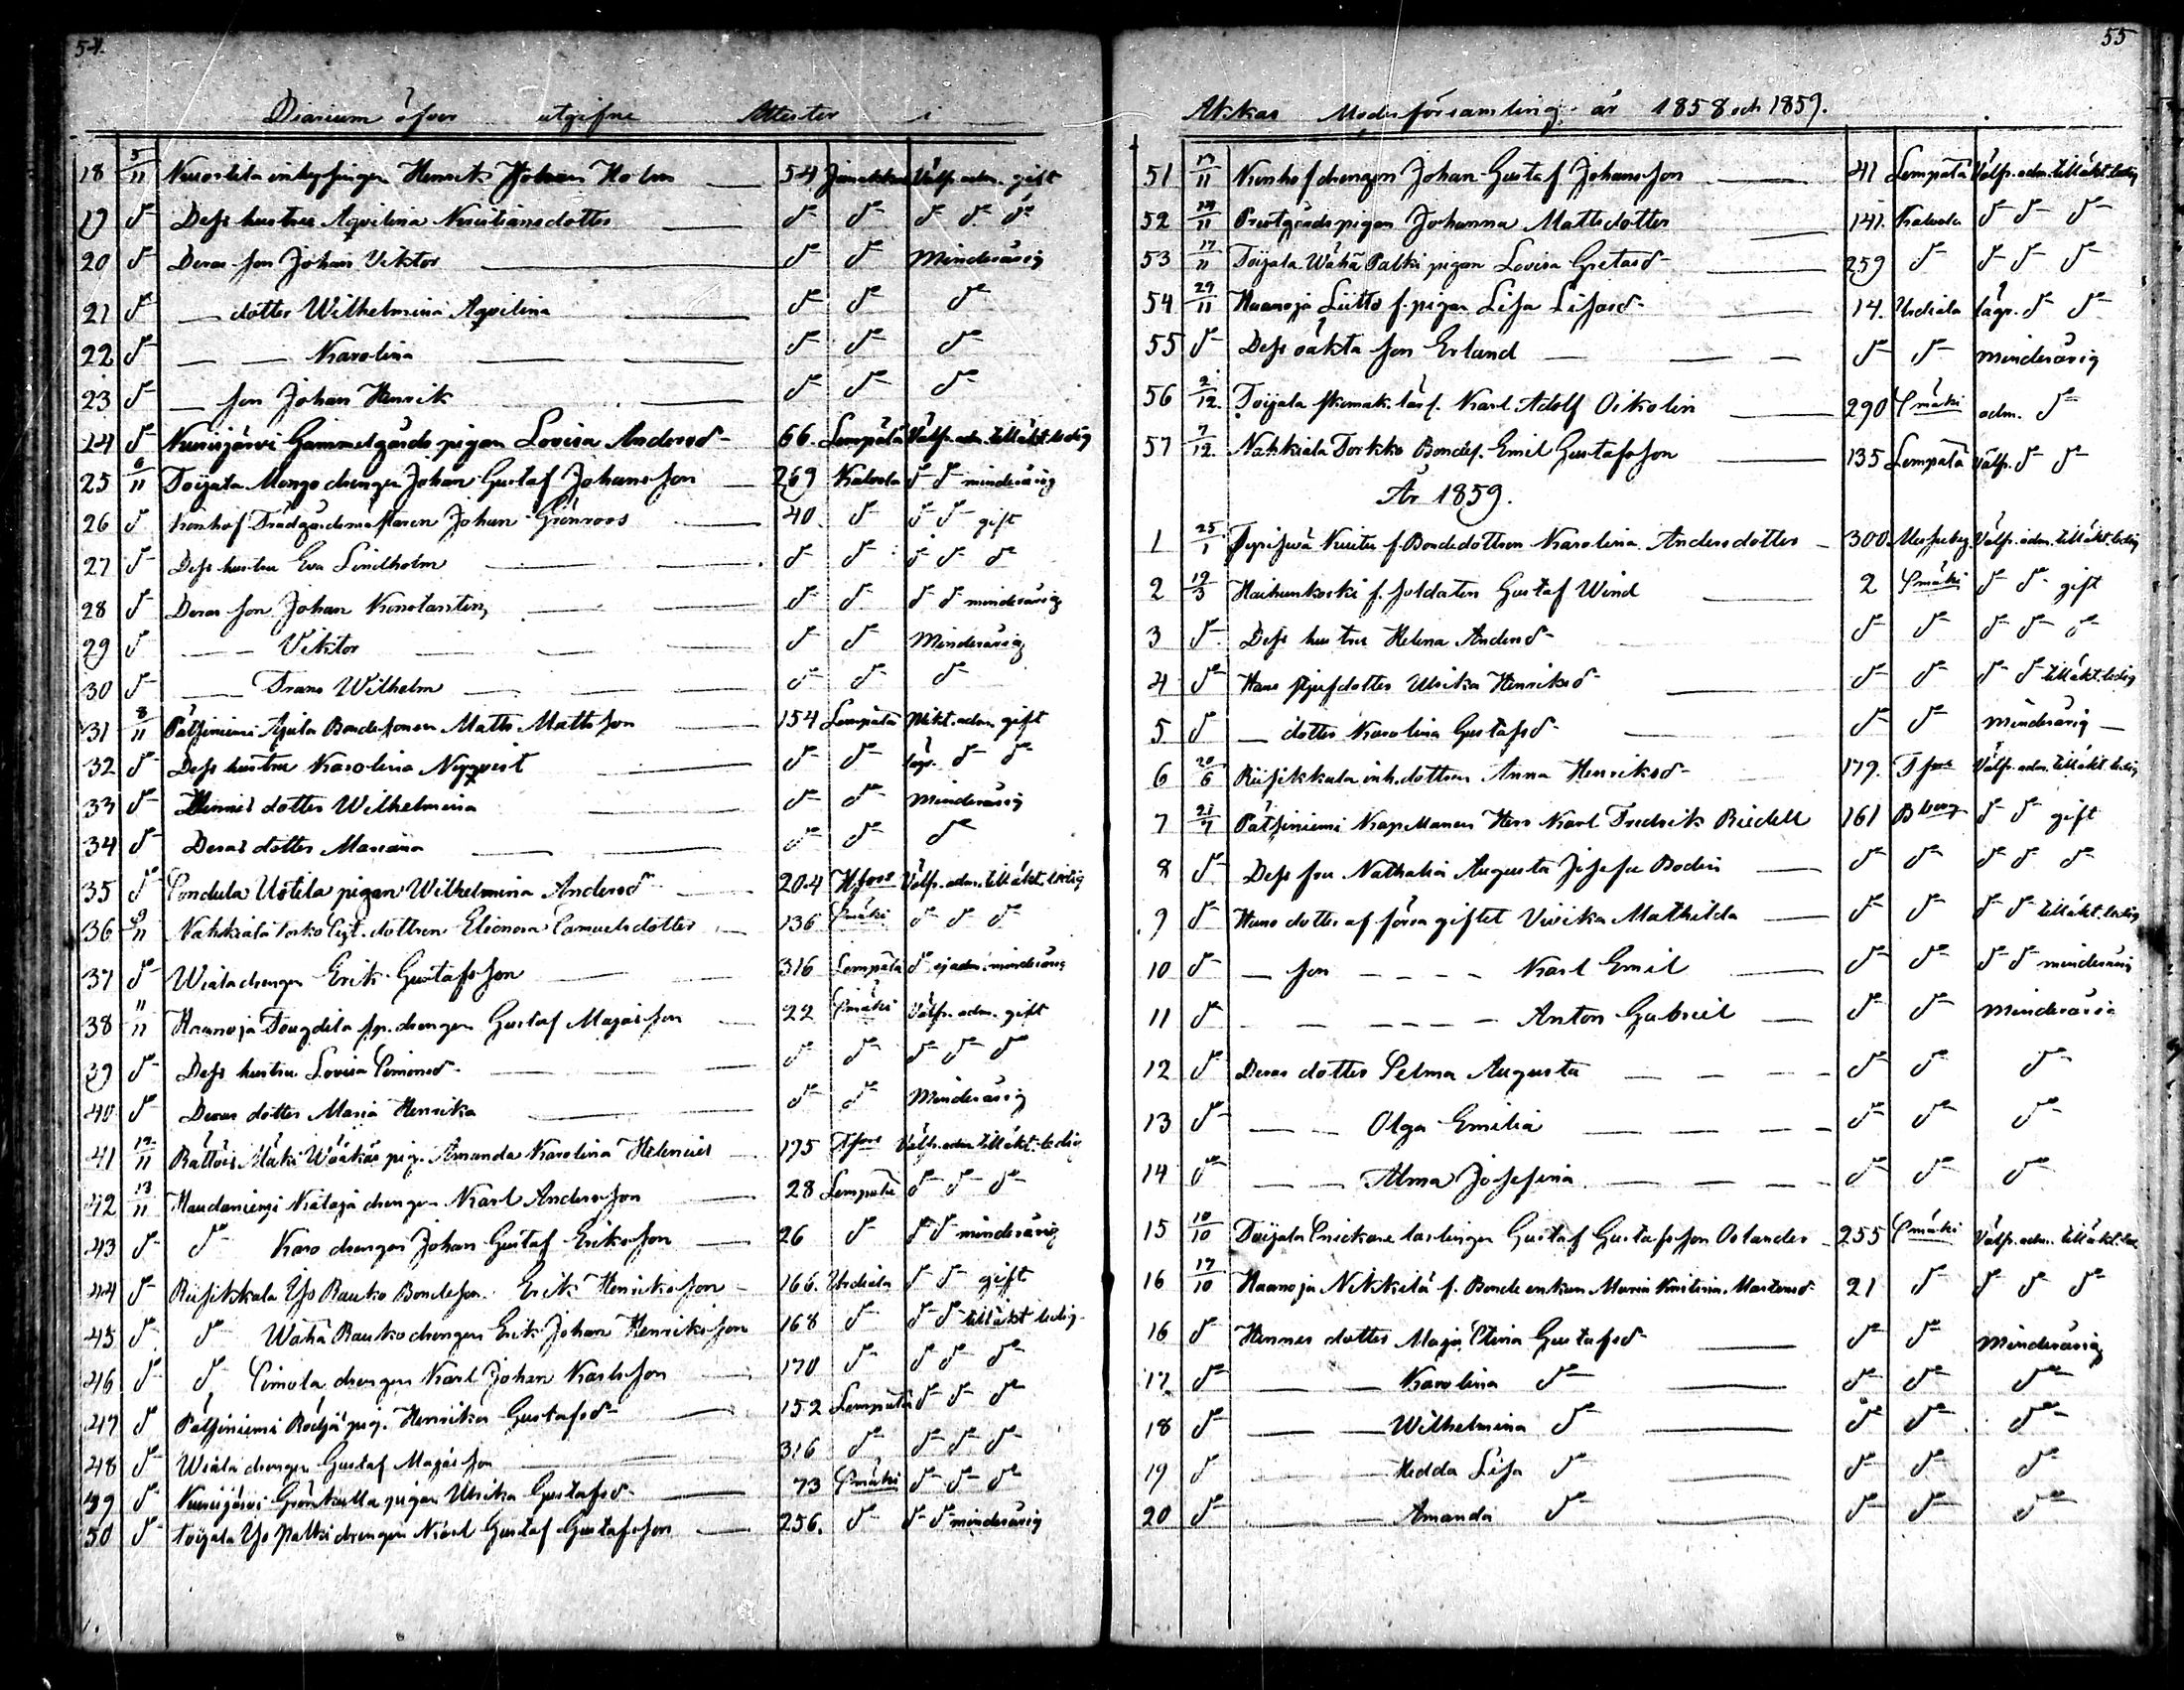 54.
Diarium öfver utgifne Attester i
18 5/11 inhysingen Henrik Johan Holm 54 Välfr. adm. gift
19 d:o Dess hustru Aqvilina d:o d:o d:o d:o d:o
20 d:o Deras son Johan Viktor d:o d:o Minderårig
21 d:o — dotter Wilhelmina Aqvilina d:o d:o d:o
22 d:o — — Karolina d:o d:o d:o
23 d:o — son Johan Henrik d:o d:o d:o
24 d:o Kurisjärvi Gammelgårds pigan Lovisa Andersd:r 66 Lempälä Välfr. adm. till äkt. ledig
25 6/11 Toijala Mongo drengen Johan Gustaf Johansson 269 Kalvola d:o d:o minderårig
26 d:o Kronhof Trädgårdsmästaren Johan Grönroos 40 d:o d:o d:o gift
27 d:o Dess hustru Eva Lindholm d:o d:o d:o d:o d:o
28 d:o Deras son Johan Konstantin d:o d:o d:o d:o minderårig
29 d:o — — Viktor d:o d:o Minderårig
30 d:o — Frans Wilhelm d:o d:o d:o
31 8/11 Pätsiniemi Bondesonen Matts Mattsson 154 Lempälä adm. gift
32 d:o Dess hustru Karolina Nyqvist d:o d:o d:o d:o
33 d:o Hennes dotter Wilhelmina d:o d:o Minderårig
34 d:o Deras dotter Mariana d:o d:o d:o
35 d:o Sondula Ustila pigan Wilhelmina Andersd:r 204 Hfors Välfr. adm. till äkt. ledig
36 9/11 Nahkiala dottren Eleonora Samuelsdotter 136 Smäki d:o d:o d:o
37 d:o Wiala drengen Erik Gustafsson 316 Lempälä d:o ej adm. minderårig
38 11/11 Haanoja drengen Gustaf Majasson 22 Smäki Välfr. adm. gift
39 d:o Dess hustru Lovisa Simonsd:r d:o d:o d:o d:o d:o
40 d:o Deras dotter Maria Henrika d:o d:o Minderårig
41 12/11 Rättöis Mäki pig. Amanda Karolina Helenius 175 Tfors Välfr. adm. till äkt. ledig
42 13/11 Kätajä drengen Karl Andersson 28 Lempälä d:o d:o d:o
43 d:o d:o Karo drengen Johan Gustaf Eriksson 26 d:o d:o d:o minderårig
44 d:o Riisikkala Yls Rauko Bondeson Erik Henriksson 166. Urdiala d:o d:o gift
45 d:o d:o Wähä Rauko drengen Erik Johan Henriksson 168 d:o d:o d:o till äkt ledig
46 d:o d:o Simola drengen Karl Johan Karlsson 170 d:o d:o d:o d:o
47 d:o Pätsiniemi pig. Henrika Gustafsd:r 152 Lempälä d:o d:o d:o
48 d:o Wiala drengen Gustaf Majasson 316 d:o d:o d:o d:o
49 d:o Kurisjärvi Grönkulla pigan Ulrika Gustafsd:r 73 Smäki d:o d:o d:o
50 d:o Toijala Yls Palki drengen Karl Gustaf Gustafsson 256. d:o d:o d:o minderårig
55
Akkas Moderförsamling år 1858 och 1859.
51 /11 Kronhof drengen Johan Gustaf Johansson 41 Lempälä Välfr. adm. till äkt. ledig
52 /11 Prestgårdspigan Johanna Mattsdotter 141. Kalvola d:o d:o d:o
53 17/11 Toijala Wähä Palki pigan Lovisa Gretasd:r 259 d:o d:o d:o d:o
54 29/11 Haanoja Liitto f. pigan Lisa Lisasd:r 14. Urdiala lagv. d:o d:o
55 d:o Dess oäkta son Erland d:o d:o minderårig
56 2/12. Toijala skomak. lärl. Karl Adolf Oikolin 290 Smäki adm. d:o
57 7/12. Nahkiala Torkko Bondes. Emil Gustafsson 135 Lempälä Välfr. d:o d:o
År 1859.
1 25/1 f. Bondedottren Karolina Andersdotter 300 Välfr. adm. till äkt. ledig
2 19/3 Haihunkoski f. soldaten Gustaf Wind 2 Smäki d:o d:o gift
3 d:o Dess hustru Helena Andersd:r d:o d:o d:o d:o d:o
4 d:o Hans styfdotter Ulrika Henriksd:r d:o d:o d:o d:o till äkt. ledig
5 d:o — dotter Karolina Gustafsd:r d:o d:o minderårig
6 20/6 Riisikkala inh. dottren Anna Henriksd:r 179. Tfors Välfr. adm. till äkt. ledig
7 21/7 Pätsiniemi Herr Karl Fredrik Riedell 161 Bborg d:o d:o gift
8 d:o Dess fru Nathalia Augusta Josefa Bodin d:o d:o d:o d:o d:o
9 d:o Hans dotter af förra giftet Vivika Mathilda d:o d:o d:o d:o till äkt. ledig
10 d:o — son — — — — Karl Emil d:o d:o d:o d:o minderårig
11 d:o — — — — — — Anton Gabriel d:o d:o Minderårig
12 d:o Deras dotter Selma Augusta d:o d:o d:o
13 d:o — — Olga Emilia d:o d:o d:o
14 d:o — — Alma Josefina d:o d:o d:o
15 10/10 Toijala Snickare lärlingen Gustaf Gustafsson Oslander 255 Smäki Välfr. adm. till äkt. led
16 17/10 Haanoja Nikkilä f. Bonde enkan Maria Kristina Mårtensd:r 21 d:o d:o d:o d:o
16 d:o Hennes dotter Maja Stina Gustafsd:r d:o d:o Minderårig
17 d:o — — Karolina d:o d:o d:o d:o
18 d:o — — Wilhelmina d:o d:o d:o d:o
19 d:o — — Hedda Lisa d:o d:o d:o d:o
20 d:o — — Amanda d:o d:o d:o d:o